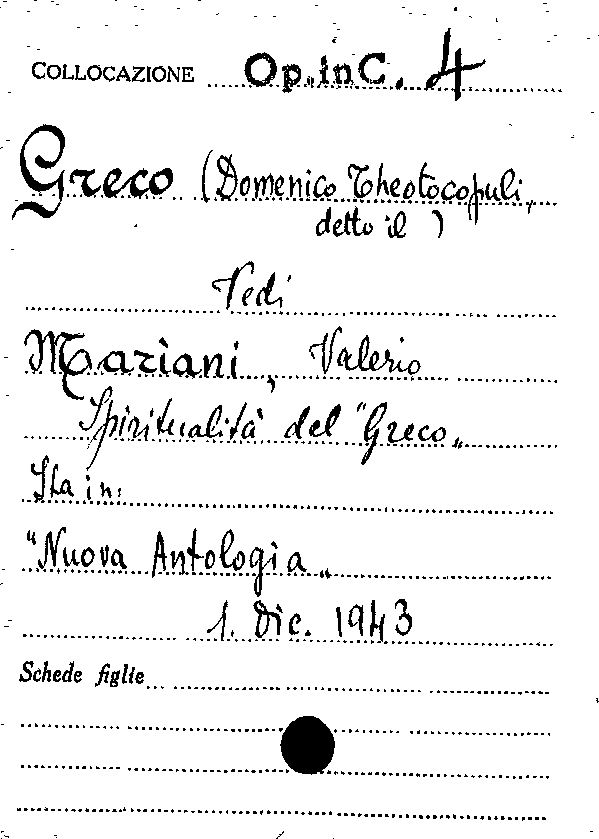 COLLOCAZIONE Op.inC. 4
Greco (Domenico Theotocopuli,
detto il )
Vedi
Mariani, Valerio
Spiritualità del "Greco„
Sta in:
"Nuova Antologia„
1. Dic. 1943
Schede figlie